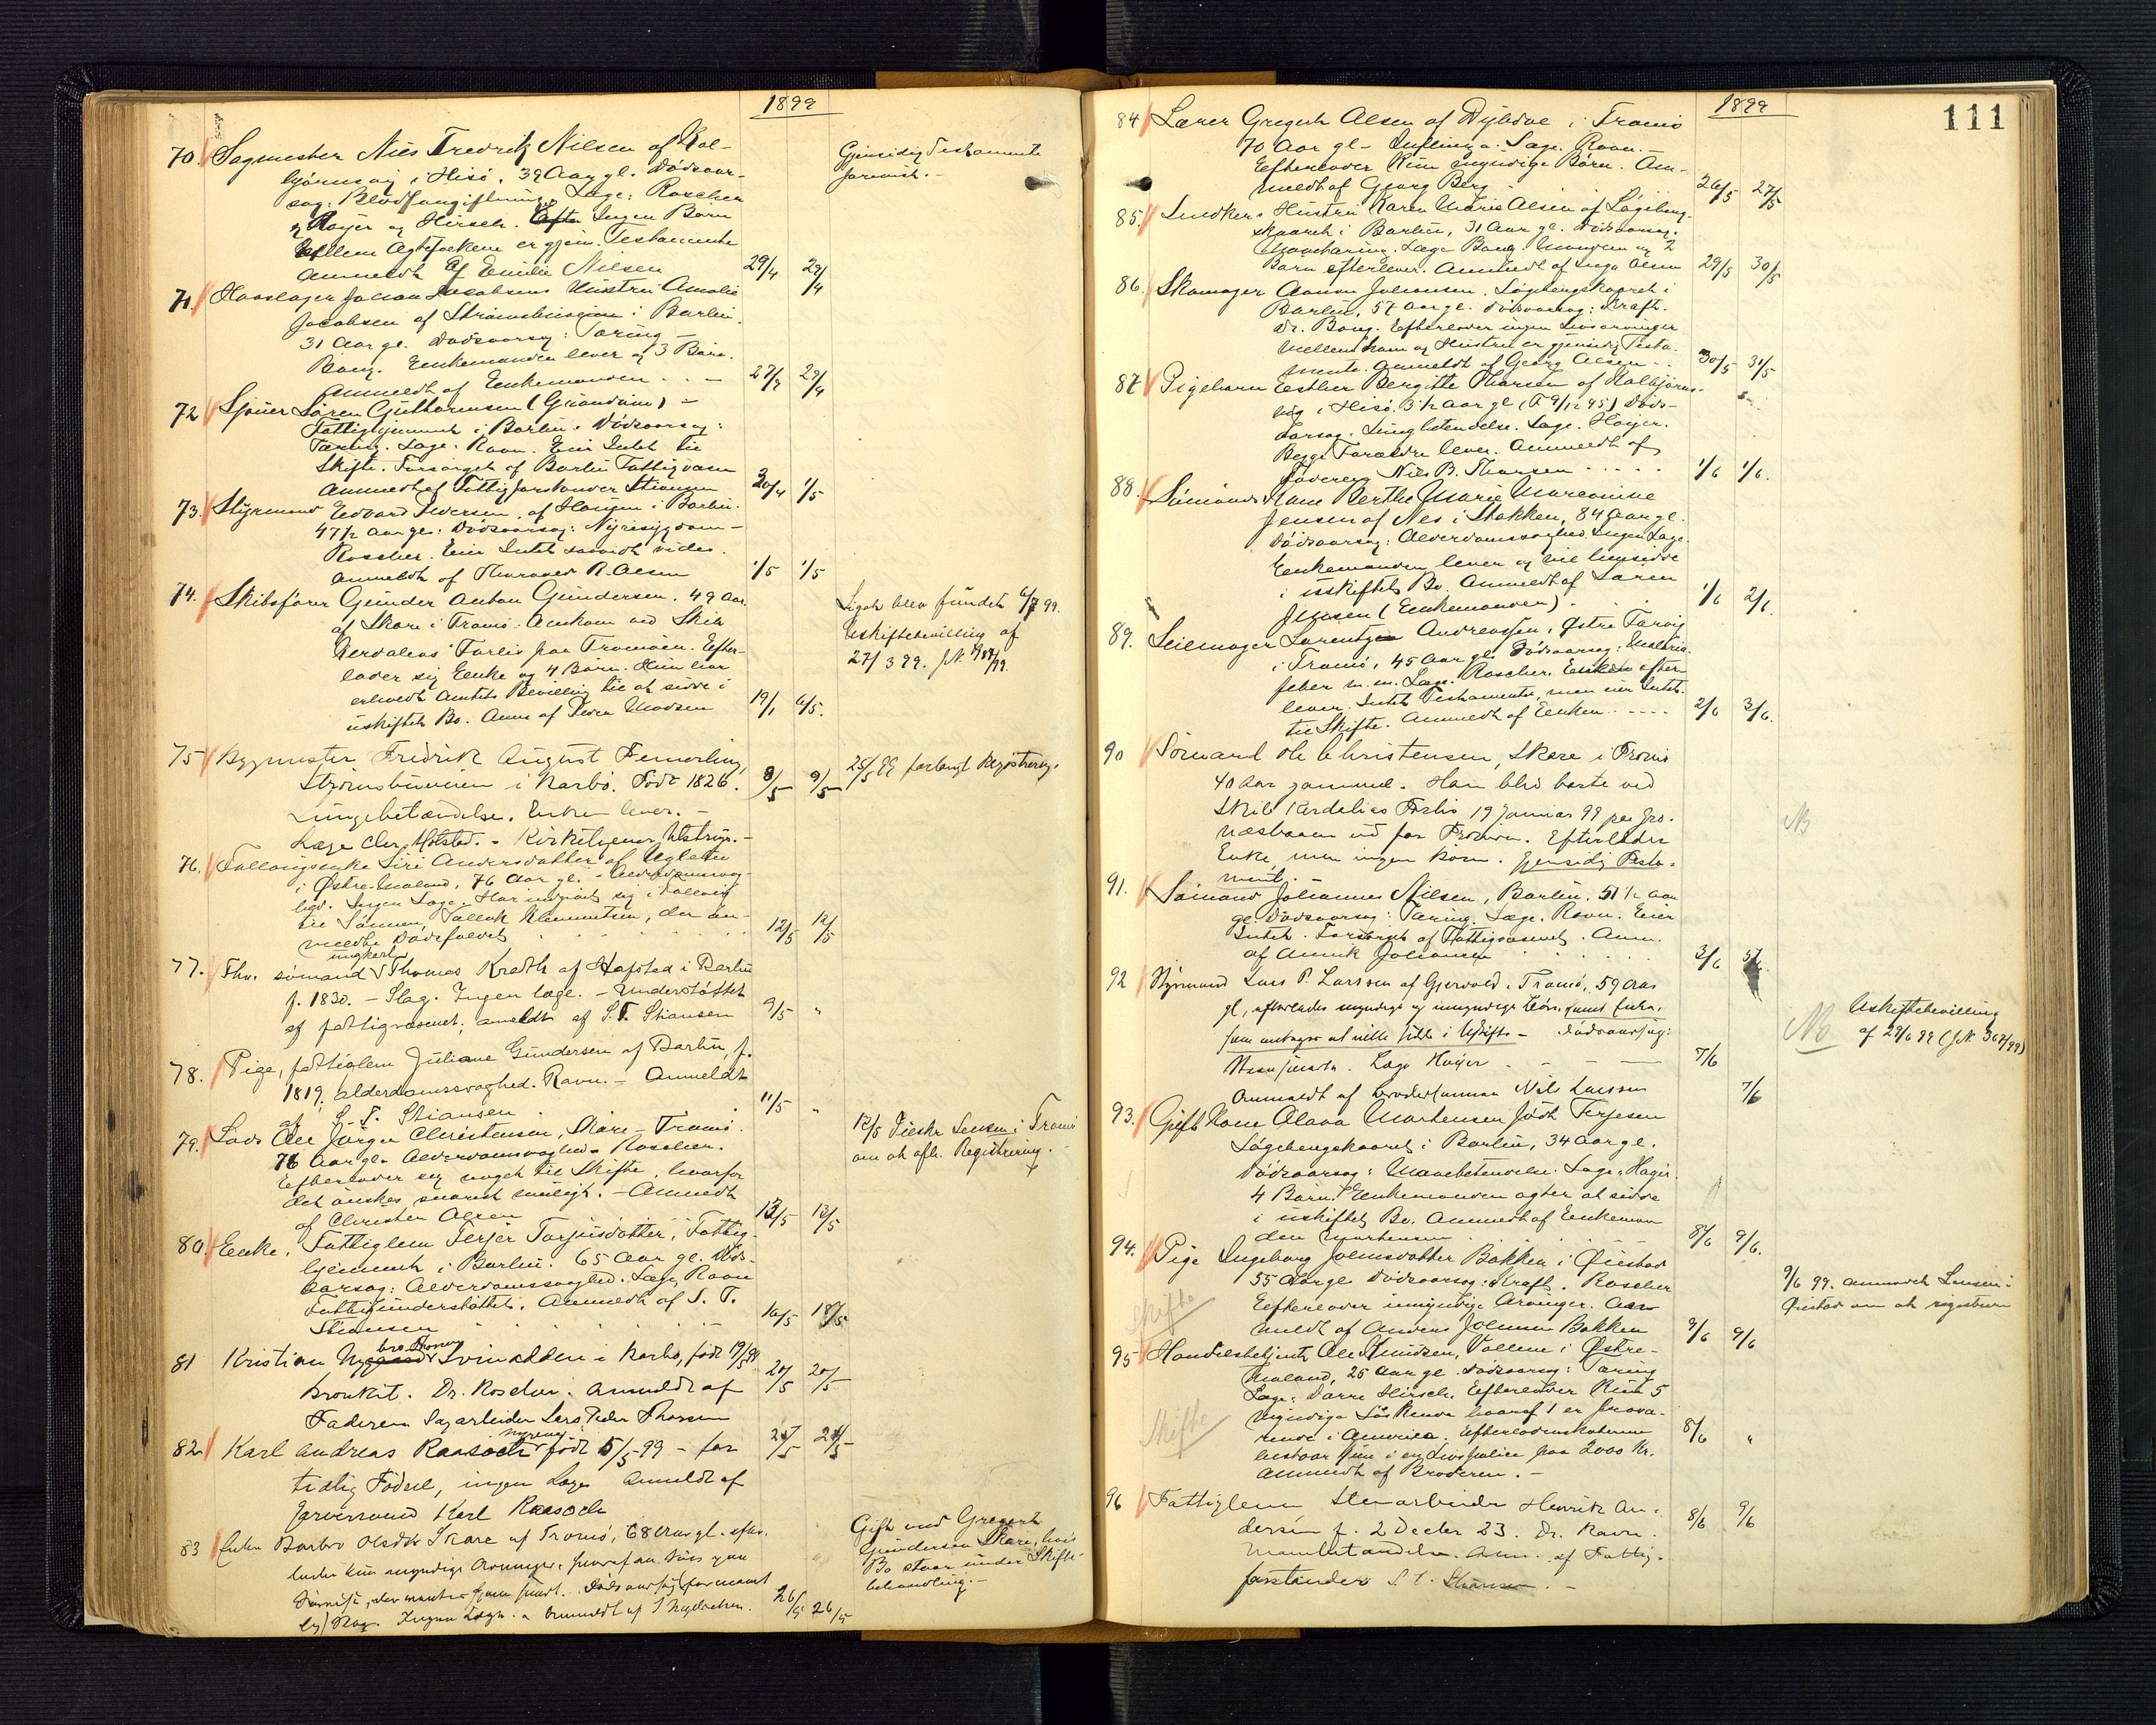 1899
70. Sagmester Nils Fredrik Nilsen af Kol-
bjørnsvig i Hisö, 39 Aar gl. Dödsaar-
sag: Blodforgiftning. Læge: Roscher
og Høyer og Hirsch. Efte Ingen Børn
Mellem Ægtefolkene er gjen. Testamente
Anmeldt af Emilie Nilsen 29/4 29/4
Gjensidig Testamente
71. Johan Jacobsens Hustru Amalie
Jacobsen af Strømsbusneien i Barbu.
31 Aar gl. Dødsaarsag: Tæring –
Bang. Enkemanden lever og 3 Børn.
Anmeldt af Enkemanden . . – 29/4
72 Sjouer Søren Guttormsen (Grændum) –
Fattighjemmet i Barbu. Dødsaarsag:
Tæring. Læge: Ravn. Eier Intet til
Skifte. Forsørget af Barbu Fattigvæsen
Anmeldt af Fattigforstander Stiansen 30/4 1/5
73. Styrmand Edvard Iversen af Haugen i Barbu.
47½ Aar gl. Dødsaarsag: Nyresygdom –
Roscher. Eier Intet saavidt vides.
Anmeldt af Thorvald R. Olsen 1/5 1/5
74. Skibsfører Gunder Anton Gundersen, 49 Aar.
af Skare i Tromö. Omkom ved Skib
Kerdalias Forlis paa Tromöen. Efter-
lader sig Enke og 4 Børn. Hun har
erholdt Amtets Bevilling til at sidde i
uskiftet Bo. Anm af Peder Madsen 19/1 6/5.
Liget blev fundet 6/7 99.
Uskiftebevilling af
27/3 99.
75 Bygmester Fredrik August Femerling,
Strømsbuveien i Barbo. Født 1826. 8/5 9/5
Lungebetændelse. Enken lever. –
Læge Chr. Holstad. – Kirketjener Ulstrup. –
25/5 99 forlangt Registrering.
76. Follaugsenke Siri Andersdatter af Ugletu
i Østre-Moland, 76 Aar gl. – Alderdomssvag-
hed. Ingen Læge. Har indgivet sig i Follaug
til Sønnen, Tallak Klemmetsen, der an-
meldte Dødsfaldet 12/5 12/5
77. Fhv. sömand ungkarl Thomas Kræth af Hafsted i Barbu
f. 1830. – Slag. Ingen læge. – Understöttet
af fattigvæsenet, anmeldt af S. T. Stiansen 9/5 "
78. Pige, fattiglem Juliane Gundersen af Barbu, f.
1819, alderdomssvaghed. Ravn. – Anmeldt
af S. T. Stiansen . 11/5 "
79. Lods Ole Jørgen Christensen, Skare – Tromö.
76 Aar gl. Alderdomssvaghed. Roscher.
Efterlader sig noget til Skifte, hvorfor
det ønskes snarest muligt. – Anmeldt
af Christen Olsen 13/5 13/5
13/5 Tilskr Lensm. i Tromö
om at afh. Registrering.
80. Enke, Fattiglem Terjer Torjusdatter, Fattig-
hjemmet i Barbu. 65 Aar gl. Døds-
aarsag: Alderdomssvaghed. Læge Ravn
Fattigunderstøttet. Anmeldt af S. T.
Stiansen . . . . . 16/5 18/5
81 Kristian i Barbo, født
Bronkit. Dr. Roscher. Anmeldt af 20/5 20/5
Faderen Sagarbeider Lars Peder Thorsen
82 Karl Andreas Raasoch født 5/5 99 – for
tidlig Fødsel, ingen Læge Anmeldt af
Farversvend Karl Raasoch
83 Enken Barbro Olsdtr Skare af Tromö, 68 Aar gl. efter-
lader kun myndige Arvinger, hvoraf en Søn
Slag. Ingen Læge. 26/5 26/5
Gift med Gregert
Gundersen Skare, hvis
Bo staar under Skifte-
behandling. –
111
1899
84 Lærer Gregert Olsen af Dybdal i Tromö
70 Aar gl – Influenza. Læge. Ravn. –
Efterlader kun myndige Børn. An-
meldt af Georg Berg 26/5 27/5
85. Snedkers Hustru Karen Marie Olsen af Løgebergs-
skaaret i Barbu, 31 Aar gl. Dødsaarsag.
Læge Bang. Manden og 2
Børn efterlever. Anmeldt af Inga Olsen 29/5 30/5
86. Skomager Aanon Johansen. Løgebergskaaret i
Barbu, 57 Aar gl. Dødsaarsag: Kræft.
Dr. Bang. Efterlader ingen Livsarvinger
Mellem ham og Hustru er gjensidig Testa-
mente. Anmeldt af Georg Olsen 30/5 31/5
87 Pigebarn Esther Bergitte Thorsen af Kolbjørns-
vig i Hisö. 3½ Aar gl (F 9/12 95) Døds-
aarsag. Lungbetændelse. Læge. Höyer.
Begge Forældre lever. Anmeldt af
Faderen Nils B. Thorsen . . . . . 1/6 1/6.
88. Sømands Kone Berthe Marie Mareonine
Jensen af Nes i Stokken, 84 Aar gl.
Dødsaarsag: Alderdomssvaghed. Ingen Læge.
Enkemanden lever og vil hensidde
i uskiftet Bo. Anmeldt af Søren
Jensen (Enkemanden) . 1/6 2/6.
89. Seilmager Larentzen Andreassen, Østre Torvig
i Tromö, 45 Aar gl. Dødsaarsag: Malaria-
feber m. m. Læge. Roscher. Enken efter-
lever. Intet Testamente, men eier Intet
til Skifte. Anmeldt af Enken . . . . 2/6 3/6.
90 Sømand Ole Christensen, Skare i Tromö
40 Aar gammel. Han blev borte ved
Skib Kerdalias Forlis 19 Januar 99 paa Gro-
næsbaaen ud for Tromöen. Efterlader
Enke, men ingen Børn. Gjensidig Testa-
ment.
NB
91. Sømand Johannes Nilsen, Barbu. 51½ Aar
gl. Dødsaarsag: Tæring. Læge. Ravn. Eier
Intet. Forsørget af Fattigvæsenet. Anm.
af Annik Johansen . . . . . 3/6 5/6
92 Styrmand Lars P. Larssen af Gjervold i Tromö, 59 Aar
gl, efterlader myndige og umyndige Børn samt Enke,
som antages at ville sidde i Uskifte – Dødsaarsag:
Læge Høyer . – – – 7/6
Anmeldt af Brodersønnen Nils Larssen 7/6
Uskiftebevilling
af 29/6 99 (J.N. 367/99)
93. Gift Kone Olava Mortensen født Terjesen
Løgebergskaaret i Barbu, 34 Aar gl.
Dødsaarsag: Mavebetændelse. Læge: Høyer.
4 Børn. Enkemanden agter at sidde
i uskiftet Bo. Anmeldt af Enkeman
den Mortensen . . . . 8/6 9/6.
94. Pige Ingeborg Johnsdatter Bakken i Øiestad
55 Aar gl Dødsaarsag: Kræft. Roscher
Efterlader umyndige Arvinger. An-
meldt af Anders Johnsen Bakken 9/6 9/6
Skifte
9/6 99. anmodet Lensm. i
Øiestad om at registrere
95 Handelsbetjent Ole Knudsen, Vollene i Østre-
Moland, 25 Aar gl. Dødsaarsag: Tæring
Læge: Dorre Hirsch. Efterlader Kun 5
myndige Søskende hvoraf 1 er fravæ-
rende i America. Efterladenskaberne
bestaar kun i en Livspolice paa 2000 Kr.
Anmeldt af Broderen. – 8/6 "
Skifte
96 Fattiglem Stenarbeider Henrik An-
dersen f. 2 Decbr 23. Dr. Ravn. 8/6 9/6
Anm. af Fattig-
forstander S. T. Stiansen. –